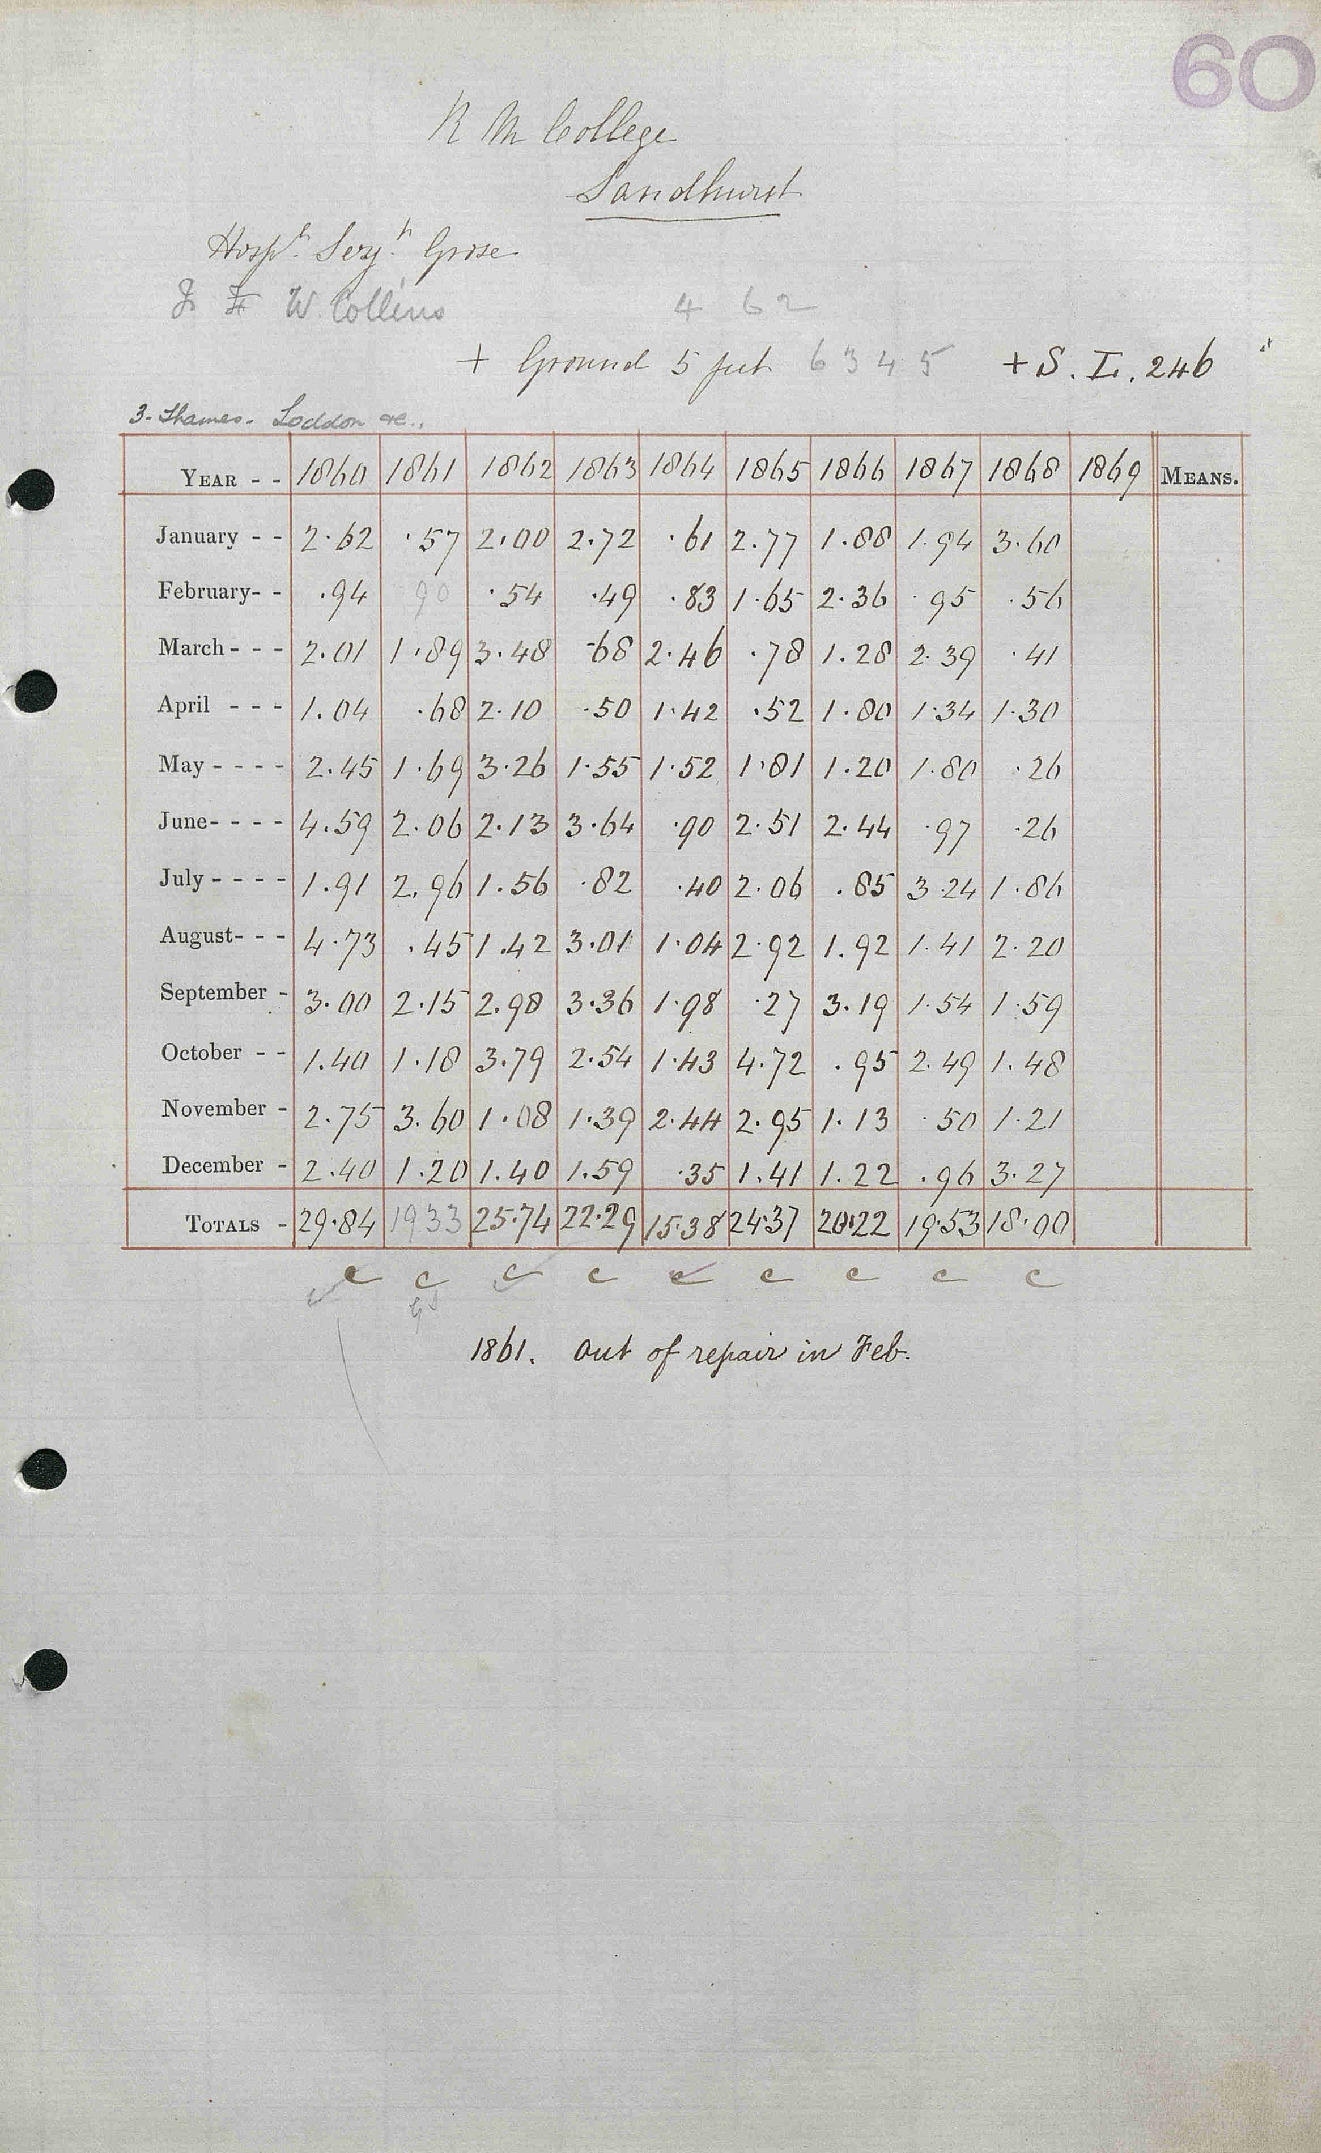 60
R M College
Sandhurst
Hospl. Serjt. Grose
J F W Collins 4 62
+ Ground 5 feet 6345 + S. L. 246
3. Thames. Loddon &c.,
YEAR - - 1860 1861 1862 1863 1864 1865 1866 1867 1868 1869 MEANS.
January - - 2.62 .57 2.00 2.72 .61 2.77 1.88 1.94 3.60
February- - .94 90 .54 .49 .83 1.65 2.36 .95 .56
March - - - 2.01 1.89 3.48 .68 2.46 .78 1.28 2.39 .41
April - - - 1.04 .68 2.10 .50 1.42 .52 1.80 1.34 1.30
May - - - - 2.45 1.69 3.26 1.55 1.52 1.81 1.20 1.80 .26
June- - - - 4.59 2.06 2.13 3.64 .90 2.51 2.44 .97 .26
July - - - - 1.91 2.96 1.56 .82 .40 2.06 .85 3.24 1.86
August- - - 4.73 .45 1.42 3.01 1.04 2.92 1.92 1.41 2.20
September - 3.00 2.15 2.98 3.36 1.98 .27 3.19 1.54 1.59
October - - 1.40 1.18 3.79 2.54 1.43 4.72 .95 2.49 1.48
November - 2.75 3.60 1.08 1.39 2.44 2.95 1.13 .50 1.21
December - 2.40 1.20 1.40 1.59 .35 1.41 1.22 .96 3.27
TOTALS - 29.84 1933 25.74 22.29 15.38 24.37 20.22 19.53 18.00
c c c c c c c c c
1861. out of repair in Feb.